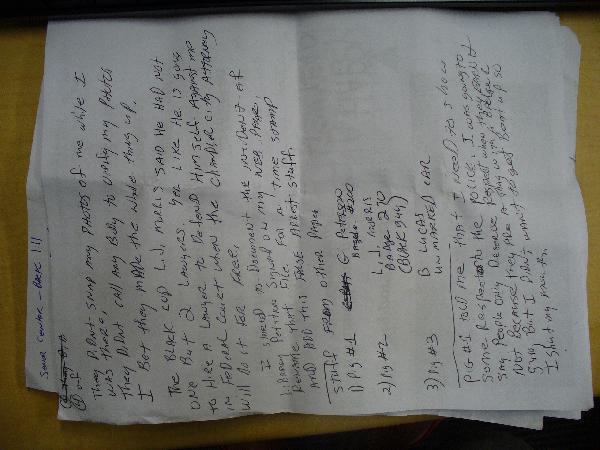 SEWER COWTAR - BACK 1:1
They Didnt snap any photos of me while I
was there.
They Didnt call any Body to verify my Photos
I Bet they made the whole thing up.
The Black cop L.J. Morris said he had not
one But 2 Lawyers. Yea Like He is going
to Hire a Lawyer to Defend Himself Against me
in Federal Court when the Chandler City Attorney
will do it for Free.
I used to Document the incident of
Library Petition Signed on my web page.
Rename that File for a time stamp
and ADD this False Arrest stuff.
STUFF FROM other Page
1) Pig #1 G Peterson
Badge #200
2) Pig #2 L.J. Morris
Badge 270
(Black guy)
3) Pig #3 B Lucas
unmarked car
Pig #1 told me that I need to show
some Respect to the Police. I was going to
say People only Deserve Respect when they earn it
Not Because they are a guy with a Badge &
gun But I Didnt want to get Beat up so
I shut my mouth.